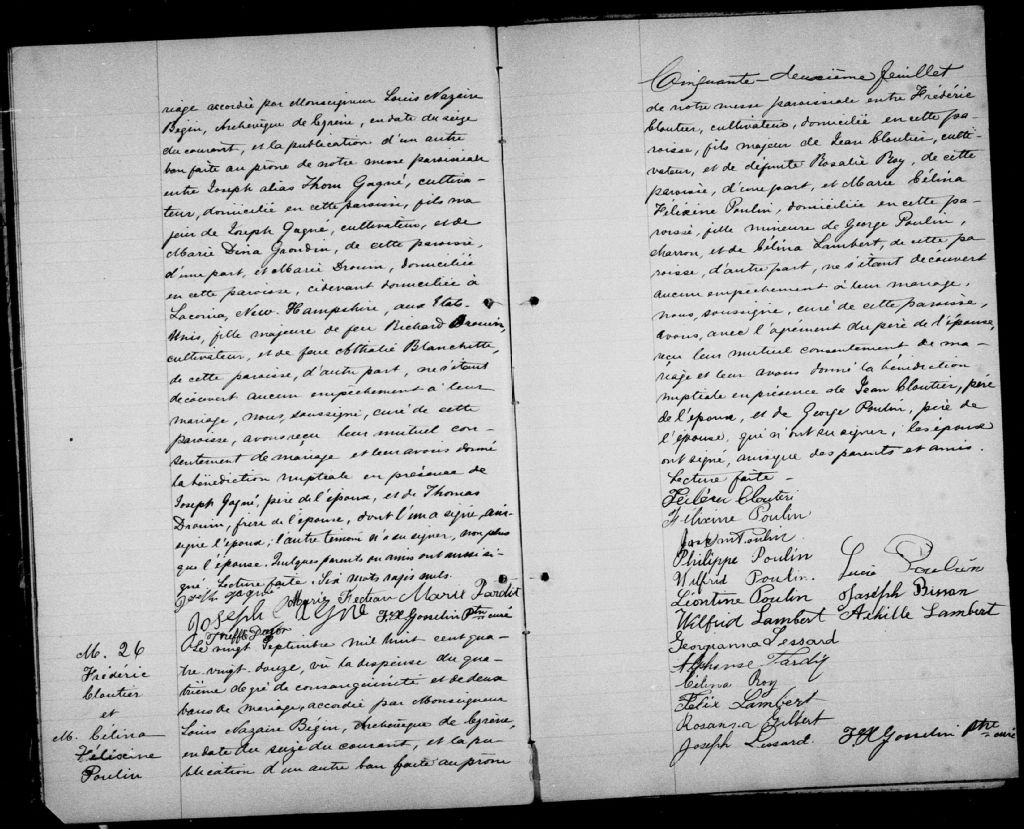 riage accordée par Monseigneur Louis Nazaire
Bégin, Archevêque de Cyrène, en date du seize
du courant, et la publication d'un autre
ban faite au prône de notre messe paroissiale
entre Joseph alias Thom Gagné, cultiva-
teur, domicilié en cette paroisse, fils ma
jeur de Joseph Gagné, cultivateur, et de
Marie Dina Grondin, de cette paroisse,
d'une part, et Marie Drouin, domiciliée
en cette paroisse, cidevant domiciliée à
Laconia, New-Hampshire, aux Etats-
Unis, fille majeure de feu Richard Drouin,
cultivateur, et de feue Athalie Blanchette,
de cette paroisse, d'autre part, ne s'étant
découvert aucun empêchement à leur
mariage, nous, soussigné, curé de cette
paroisse, avons reçu leur mutuel con-
sentement de mariage et leur avons donné
la bénédiction nuptiale en présence de
Joseph Gagné, père de l'époux, et de Thomas
Drouin, frère de l'épouse, dont l'un a signé, ainsi
signé l'époux; l'autre témoin n'a su signer, non plus
que l'épouse. Quelques parents ou amis ont aussi si-
gné. Lecture faite. Six mots rayés nuls.
Joseph Gagné Marie Fecteau Marie Tardif
Joseph Gagné F X Gosselin Ptre curé
M. 26
Frédéric
Cloutier
et
M. Célina
Félixine
Poulin
Le vingt Septembre mil huit cent qua-
tre-vingt-douze, vû la dispense du qua-
trième degré de consanguinité et de deux
bans de mariage, accordée par Monseigneur
Louis Nazaire Bégin, Archevêque de Cyrène,
en date du seize du courant, et la pu-
blication d'un autre ban faite au prône
Cinquante-deuxième feuillet
de notre messe paroissiale entre Frédéric
Cloutier, cultivateur, domicilié en cette pa-
roisse, fils majeur de Jean Cloutier, culti-
vateur, et de défunte Rosalie Roy, de cette
paroisse, d'une part, et Marie Célina
Félixine Poulin, domiciliée en cette pa-
roisse, fille mineure de George Poulin,
charron, et de Célina Lambert, de cette pa
roisse, d'autre part, ne s'étant découvert
aucun empêchement à leur mariage,
nous, soussigné, curé de cette paroisse,
avons, avec l'agrément du père de l'épouse,
reçu leur mutuel consentement de ma-
riage et leur avons donné la bénédiction
nuptiale en présence de Jean Cloutier, père
de l'époux, et de George Poulin, père de
l'épouse, qui n'ont su signer; les époux
ont signé, ainsi que des parents et amis.
Lecture faite -
Cloutier
Félixine Poulin
Poulin
Philippe Poulin
Wilfrid Poulin. Lucie Poulin
Léontine Poulin Joseph
Wilfrid Lambert Achille Lambert
Georgianna Lessard
Alphonse Tardif
Célina Roy
Félix Lambert
Rosanna Gilbert
Joseph Lessard. F X Gosselin Ptre curé